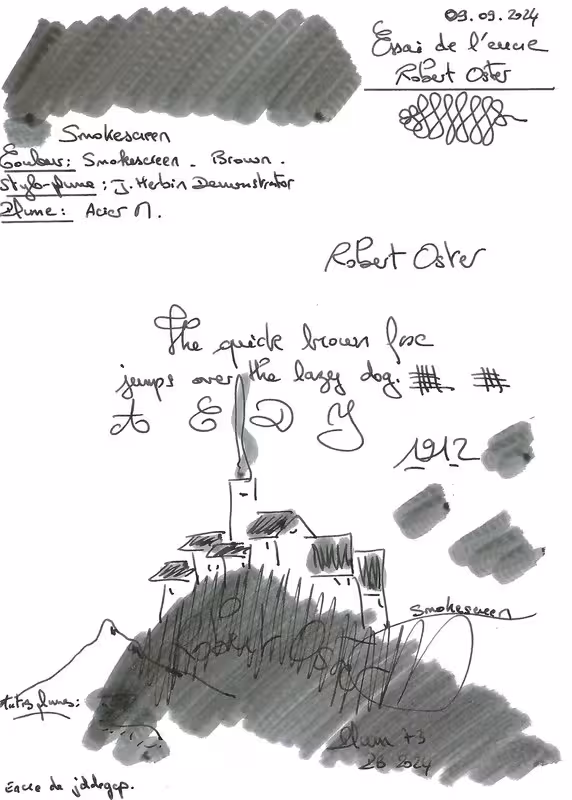 09.09.2024
Essai de l'encre
Robert Oster
Smokescreen
Couleur: Smokescreen. Brown.
Stylo-plume: J. Herbin Demonstrator
Plume: Acier M.
Robert Oster
The quick brown fox
jumps over the lazy dog.
A E D Y
1912
Smokescreen
Robert Oster
plumes:
73
28 2024
Encre de jddegap.